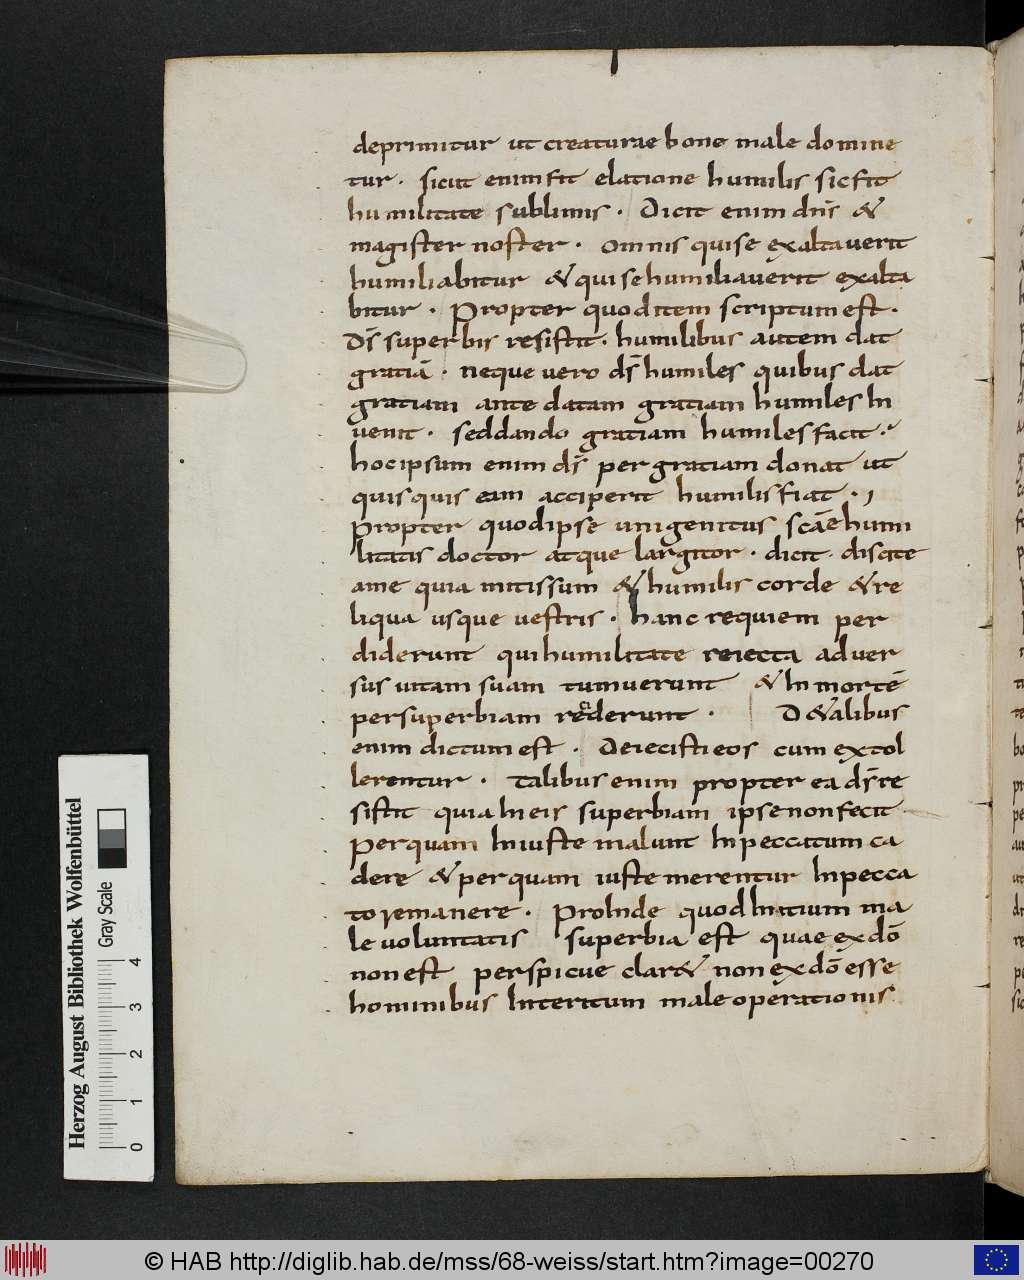 deprimitur ut creaturae bone male domine
tur. sicut enim fit elatione humilis sic fit
humilitate sublimis. Dicit enim dn̄s &
magister noster. omnis qui se exaltaverit
humiliabitur & qui se humiliaverit exalta
bitur. Propter quod item scriptum est.
D̄s superbis resistit. humilibus autem dat
gratiā. neque vero d̄s humiles quibus dat
gratiam ante datam gratiam humiles In
venit. sed dando gratiam humiles facit.
hoc ipsum enim d̄s per gratiam donat ut
quisquis eam acciperit humilis fiat.
Propter quod ipse unigenitus scāe humi
litatis doctor atque largitor. dicit. discite
a me quia mitissum & humilis corde & re
liqua usque vestris. hanc requiem per
diderunt qui humilitate reiecta adver
sus vitam suam tumuerunt & In mortē
per superbiam rederunt. D& alibus
enim dictum est. Deiecisti eos cum extol
lerentur. talibus enim propter ea d̄s re
sistit quia In eis superbiam ipse non fecit
Per quam Iniuste malunt In peccatum ca
dere & per quam iuste merentur In pecca
to remanere. ProInde quod Initium ma
le voluntatis superbia est quae ex dō
non est perspicue clar& non ex dō esse
hominibus Interitum male operationis
Herzog August Bibliothek Wolfenbüttel
Gray Scale
0 1 2 3 4
© HAB http://diglib.hab.de/mss/68-weiss/start.htm?image=00270